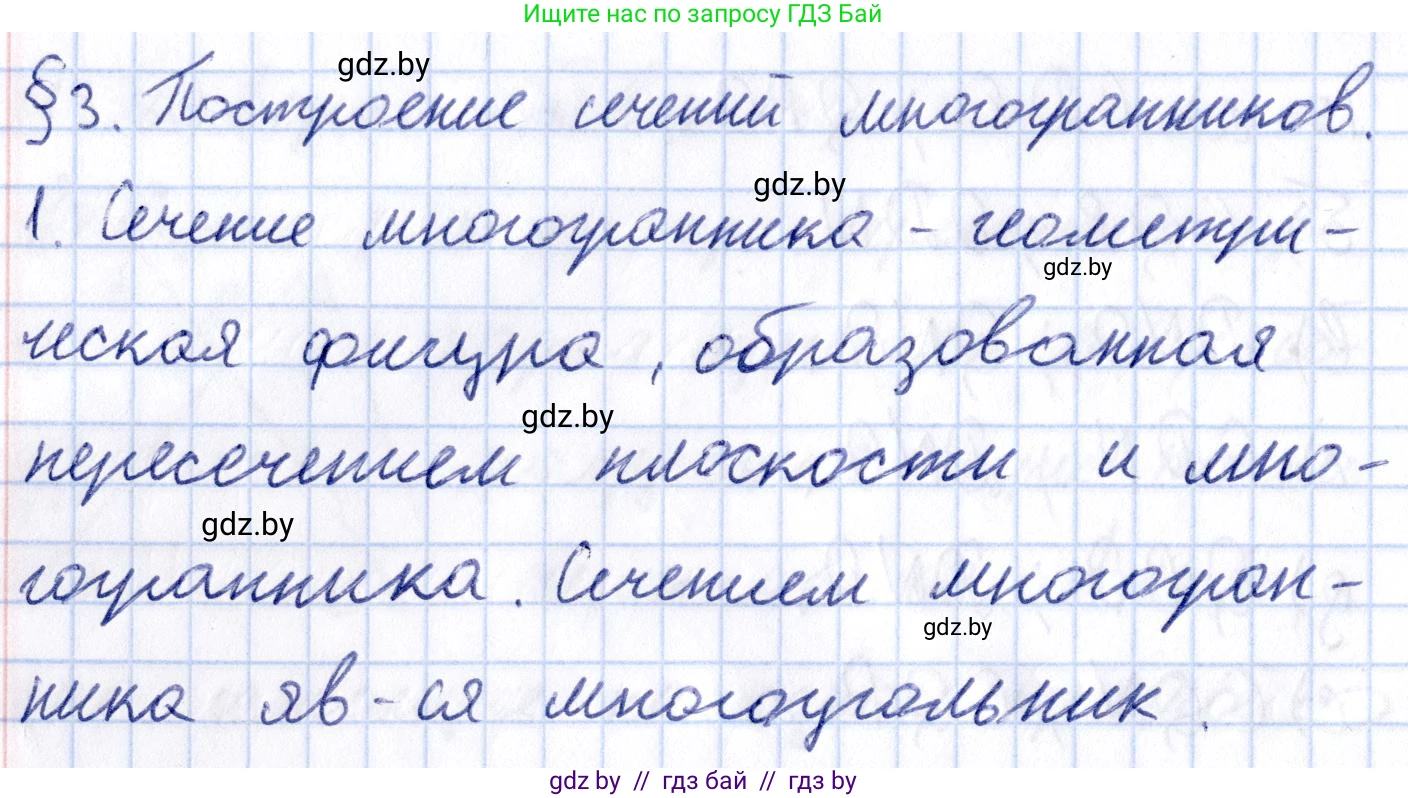 Ищите нас по запросу ГДЗ Бай
gdz.by
§3. Построение сечений многогранников.
gdz.by
1. Сечение многогранника - геометри-
gdz.by
ческая фигура, образованная
gdz.by
пересечением плоскости и мно-
gdz.by
гогранника. Сечением многогран-
gdz.by
ника яв-ся многоугольник.
gdz.by // гдз бай // гдз by